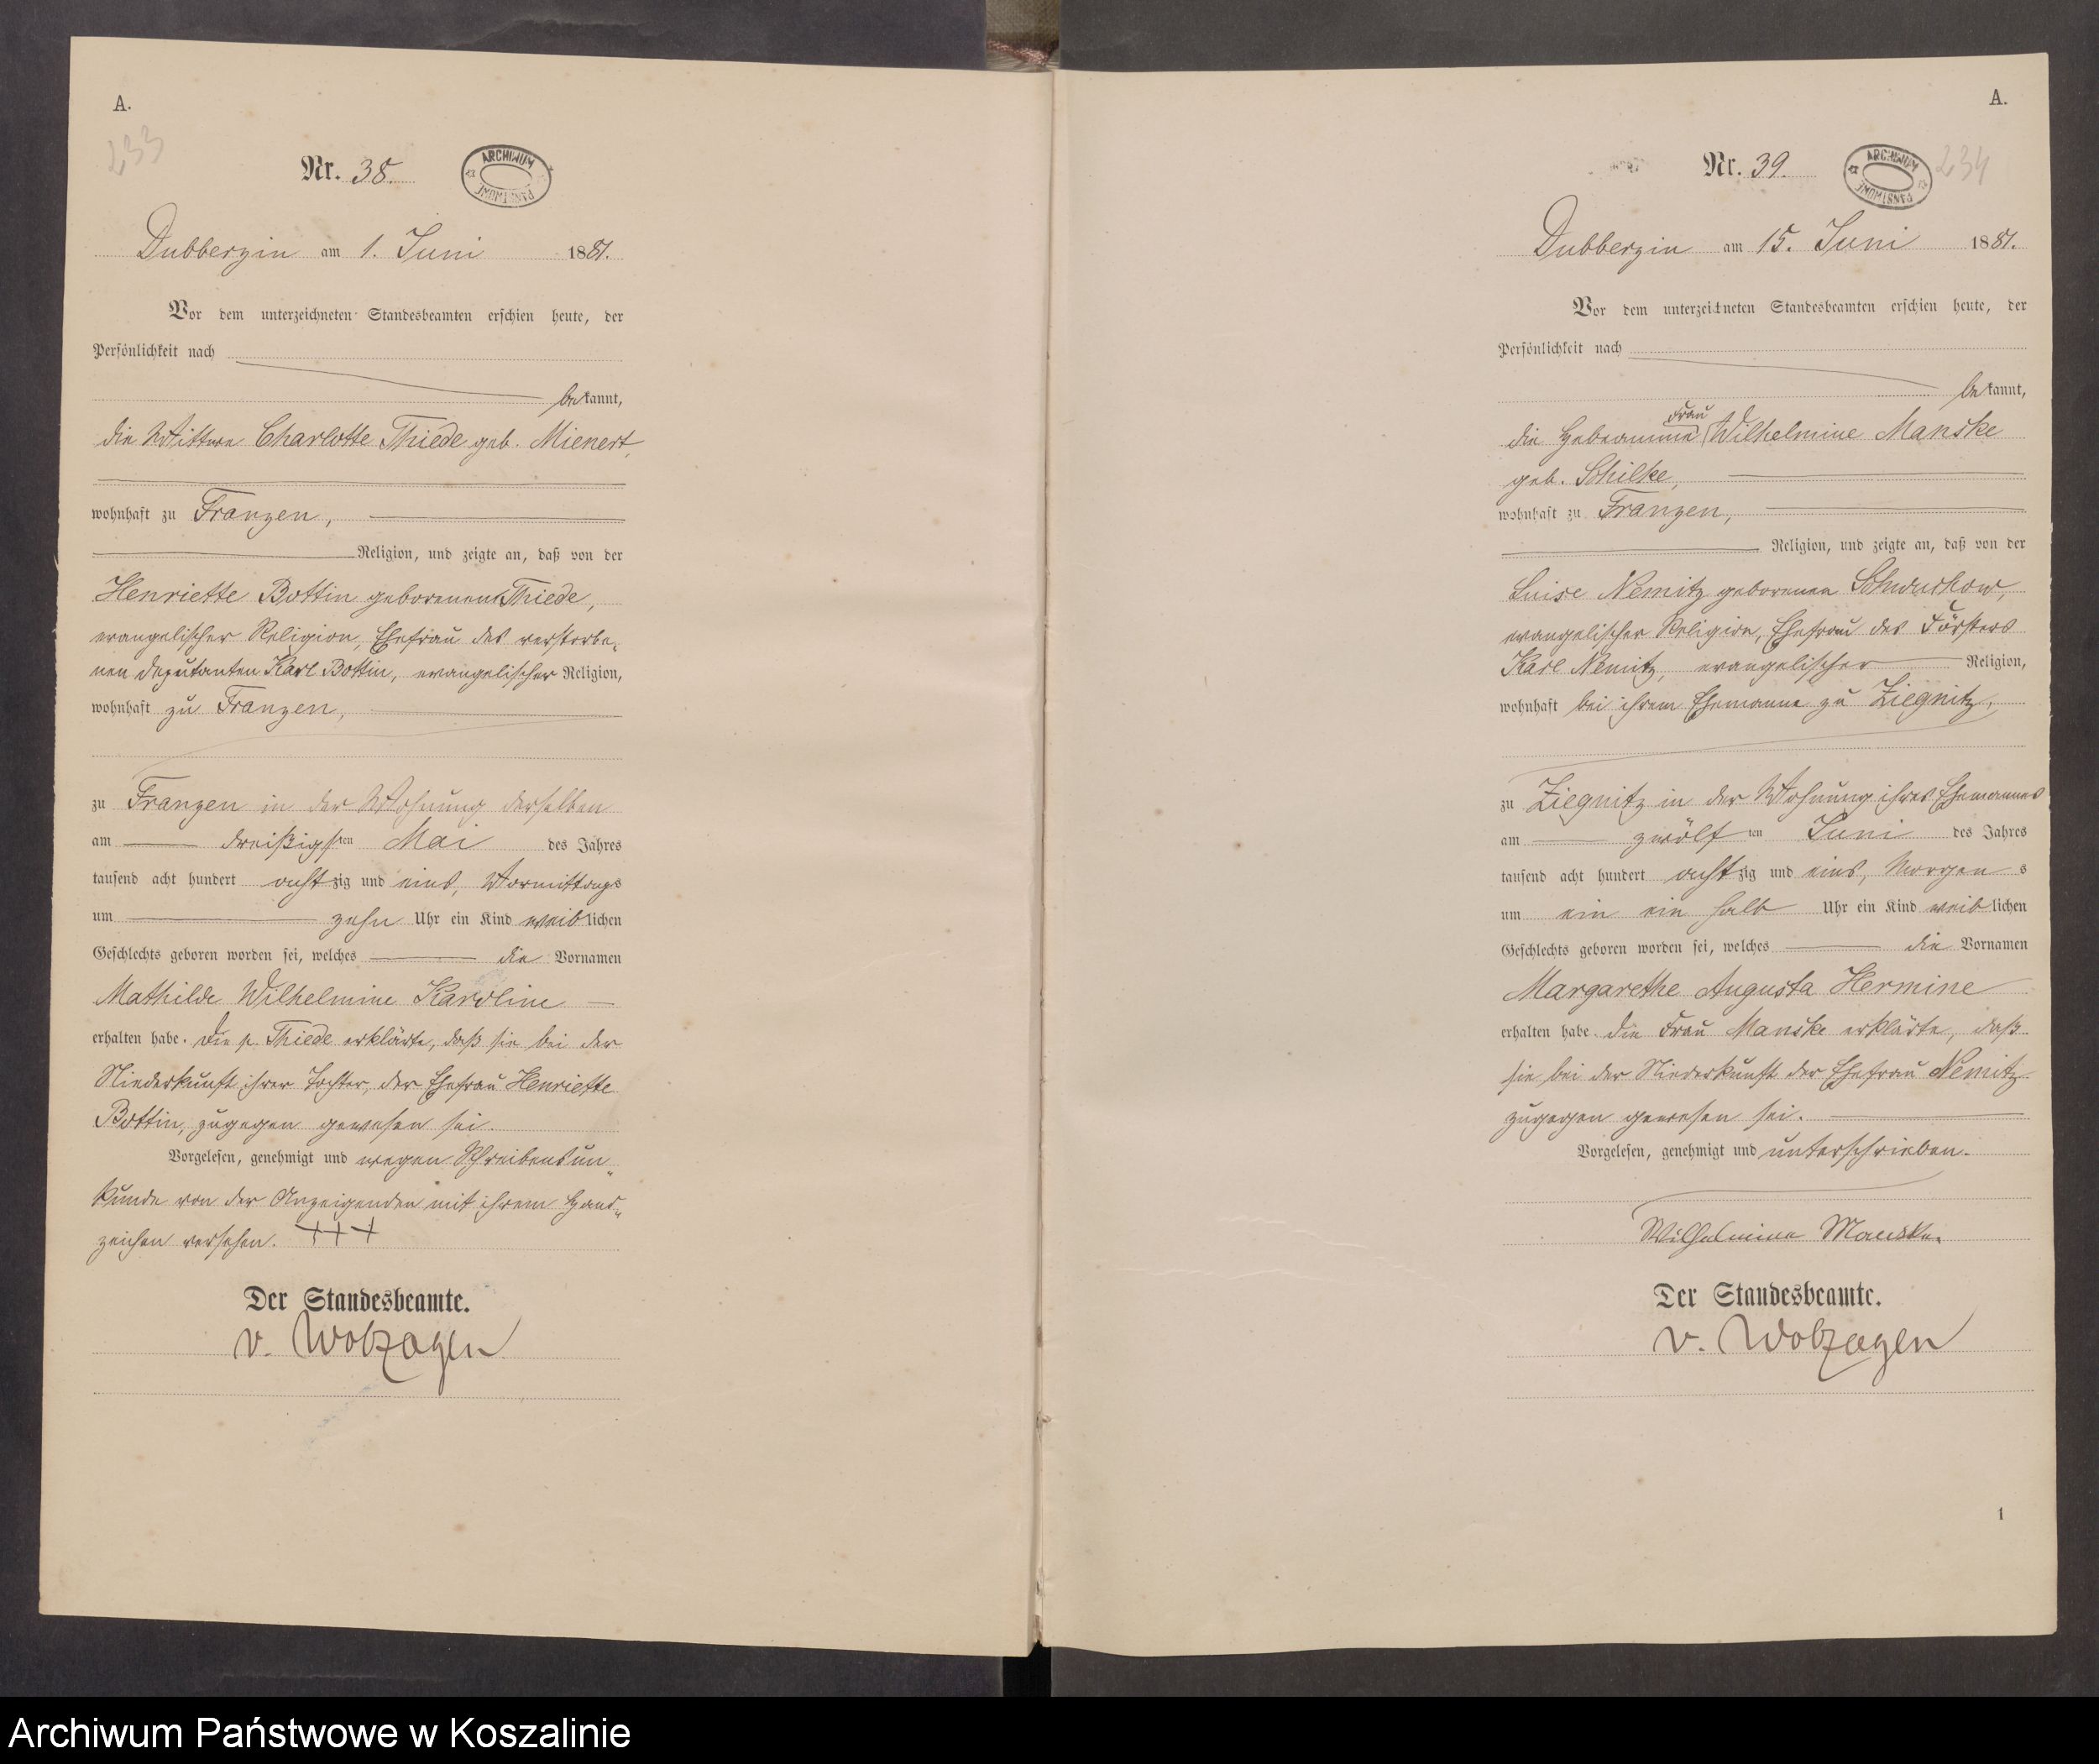 A.
233
Nr. 38.
ARCHIWUM PAŃSTWOWE
Dubberzin am 1. Juni 1881.
Vor dem unterzeichneten Standesbeamten erschien heute, der
Persönlichkeit nach
bekannt,
die Wittwe Charlotte Thiede geb. Mienert,
wohnhaft zu Franzen,
Religion, und zeigte an, daß von der
Henriette Bottin geborenen Thiede,
evangelischer Religion, Ehefrau des verstorbe-
nen Deputanten Karl Bottin, evangelischer Religion,
wohnhaft zu Franzen,
zu Franzen in der Wohnung derselben
am dreißigsten Mai des Jahres
tausend acht hundert achtzig und eins, Vormittags
um zehn Uhr ein Kind weiblichen
Geschlechts geboren worden sei, welches die Vornamen
Mathilde Wilhelmine Karoline
erhalten habe. Die p. Thiede erklärte, daß sie bei der
Niederkunft ihrer Tochter, der Ehefrau Henriette
Bottin, zugegen gewesen sei.
Vorgelesen, genehmigt und wegen Schreibensun-
kunde von der Anzeigenden mit ihrem Hand-
zeichen versehen. +++
Der Standesbeamte.
v. Wolzogen
A.
234
Nr. 39.
ARCHIWUM PAŃSTWOWE
Dubberzin am 15. Juni 1881.
Vor dem unterzeichneten Standesbeamten erschien heute, der
Persönlichkeit nach
bekannt,
die Hebeamme Frau Wilhelmine Manske
geb. Schilke,
wohnhaft zu Franzen,
Religion, und zeigte an, daß von der
Luise Nemitz geborenen Schwuchow,
evangelischer Religion, Ehefrau des Försters
Karl Nemitz, evangelischer Religion,
wohnhaft bei ihrem Ehemanne zu Ziegnitz,
zu Ziegnitz in der Wohnung ihres Ehemannes
am zwölften Juni des Jahres
tausend acht hundert achtzig und eins, Morgens
um ein ein halb Uhr ein Kind weiblichen
Geschlechts geboren worden sei, welches die Vornamen
Margarethe Augusta Hermine
erhalten habe. Die Frau Manske erklärte, daß
sie bei der Niederkunft der Ehefrau Nemitz
zugegen gewesen sei.
Vorgelesen, genehmigt und unterschrieben.
Wilhelmine Manske.
Der Standesbeamte.
v. Wolzogen
1
Archiwum Państwowe w Koszalinie